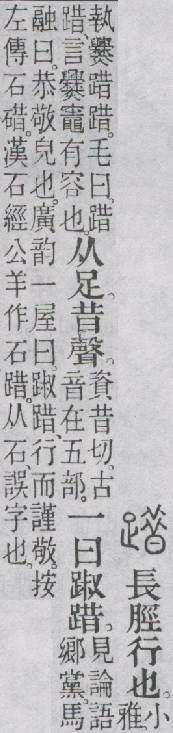 踖 長脛行也。小雅
執爨踖踖。毛曰。踖踖、言爨竈有容也。从足。昔聲。資昔切。古音在五部。一曰踧踖。見論語鄉黨。馬
融曰。恭敬皃也。廣韵一屋曰。踧踖、行而謹敬。按
左傳石碏。漢石經公羊作石踖。从石誤字也。